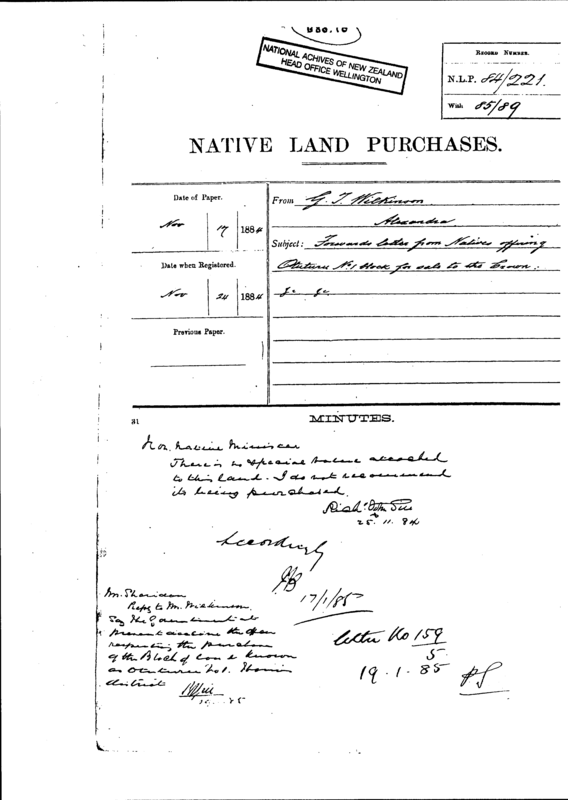 NATIONAL ACHIVES OF NEW ZEALAND
HEAD OFFICE WELLINGTON
RECORD NUMBER.
N.L.P. 84/221.
With 85/89
NATIVE LAND PURCHASES.
Date of Paper.
Nov 17 1884
Date when Registered.
Nov 24 1884
Previous Paper.
From G. T. Wilkinson
Alexandra
Subject: Forwards letter from Natives offering
No 1 block for sale to the Crown.
&c &c
31
MINUTES.
Hon. Native Minister
There is no special value attached
to this land. I do not recommend
its being purchased.
25.11.84
Accordingly
JB
17/1/85
Mr. Sheridan
Reply to Mr. Wilkinson
Say the Government at
present decline the offer
respecting the purchase
of the Block of land known
as No 1.
district
letter No 159
5
19.1.85
PS